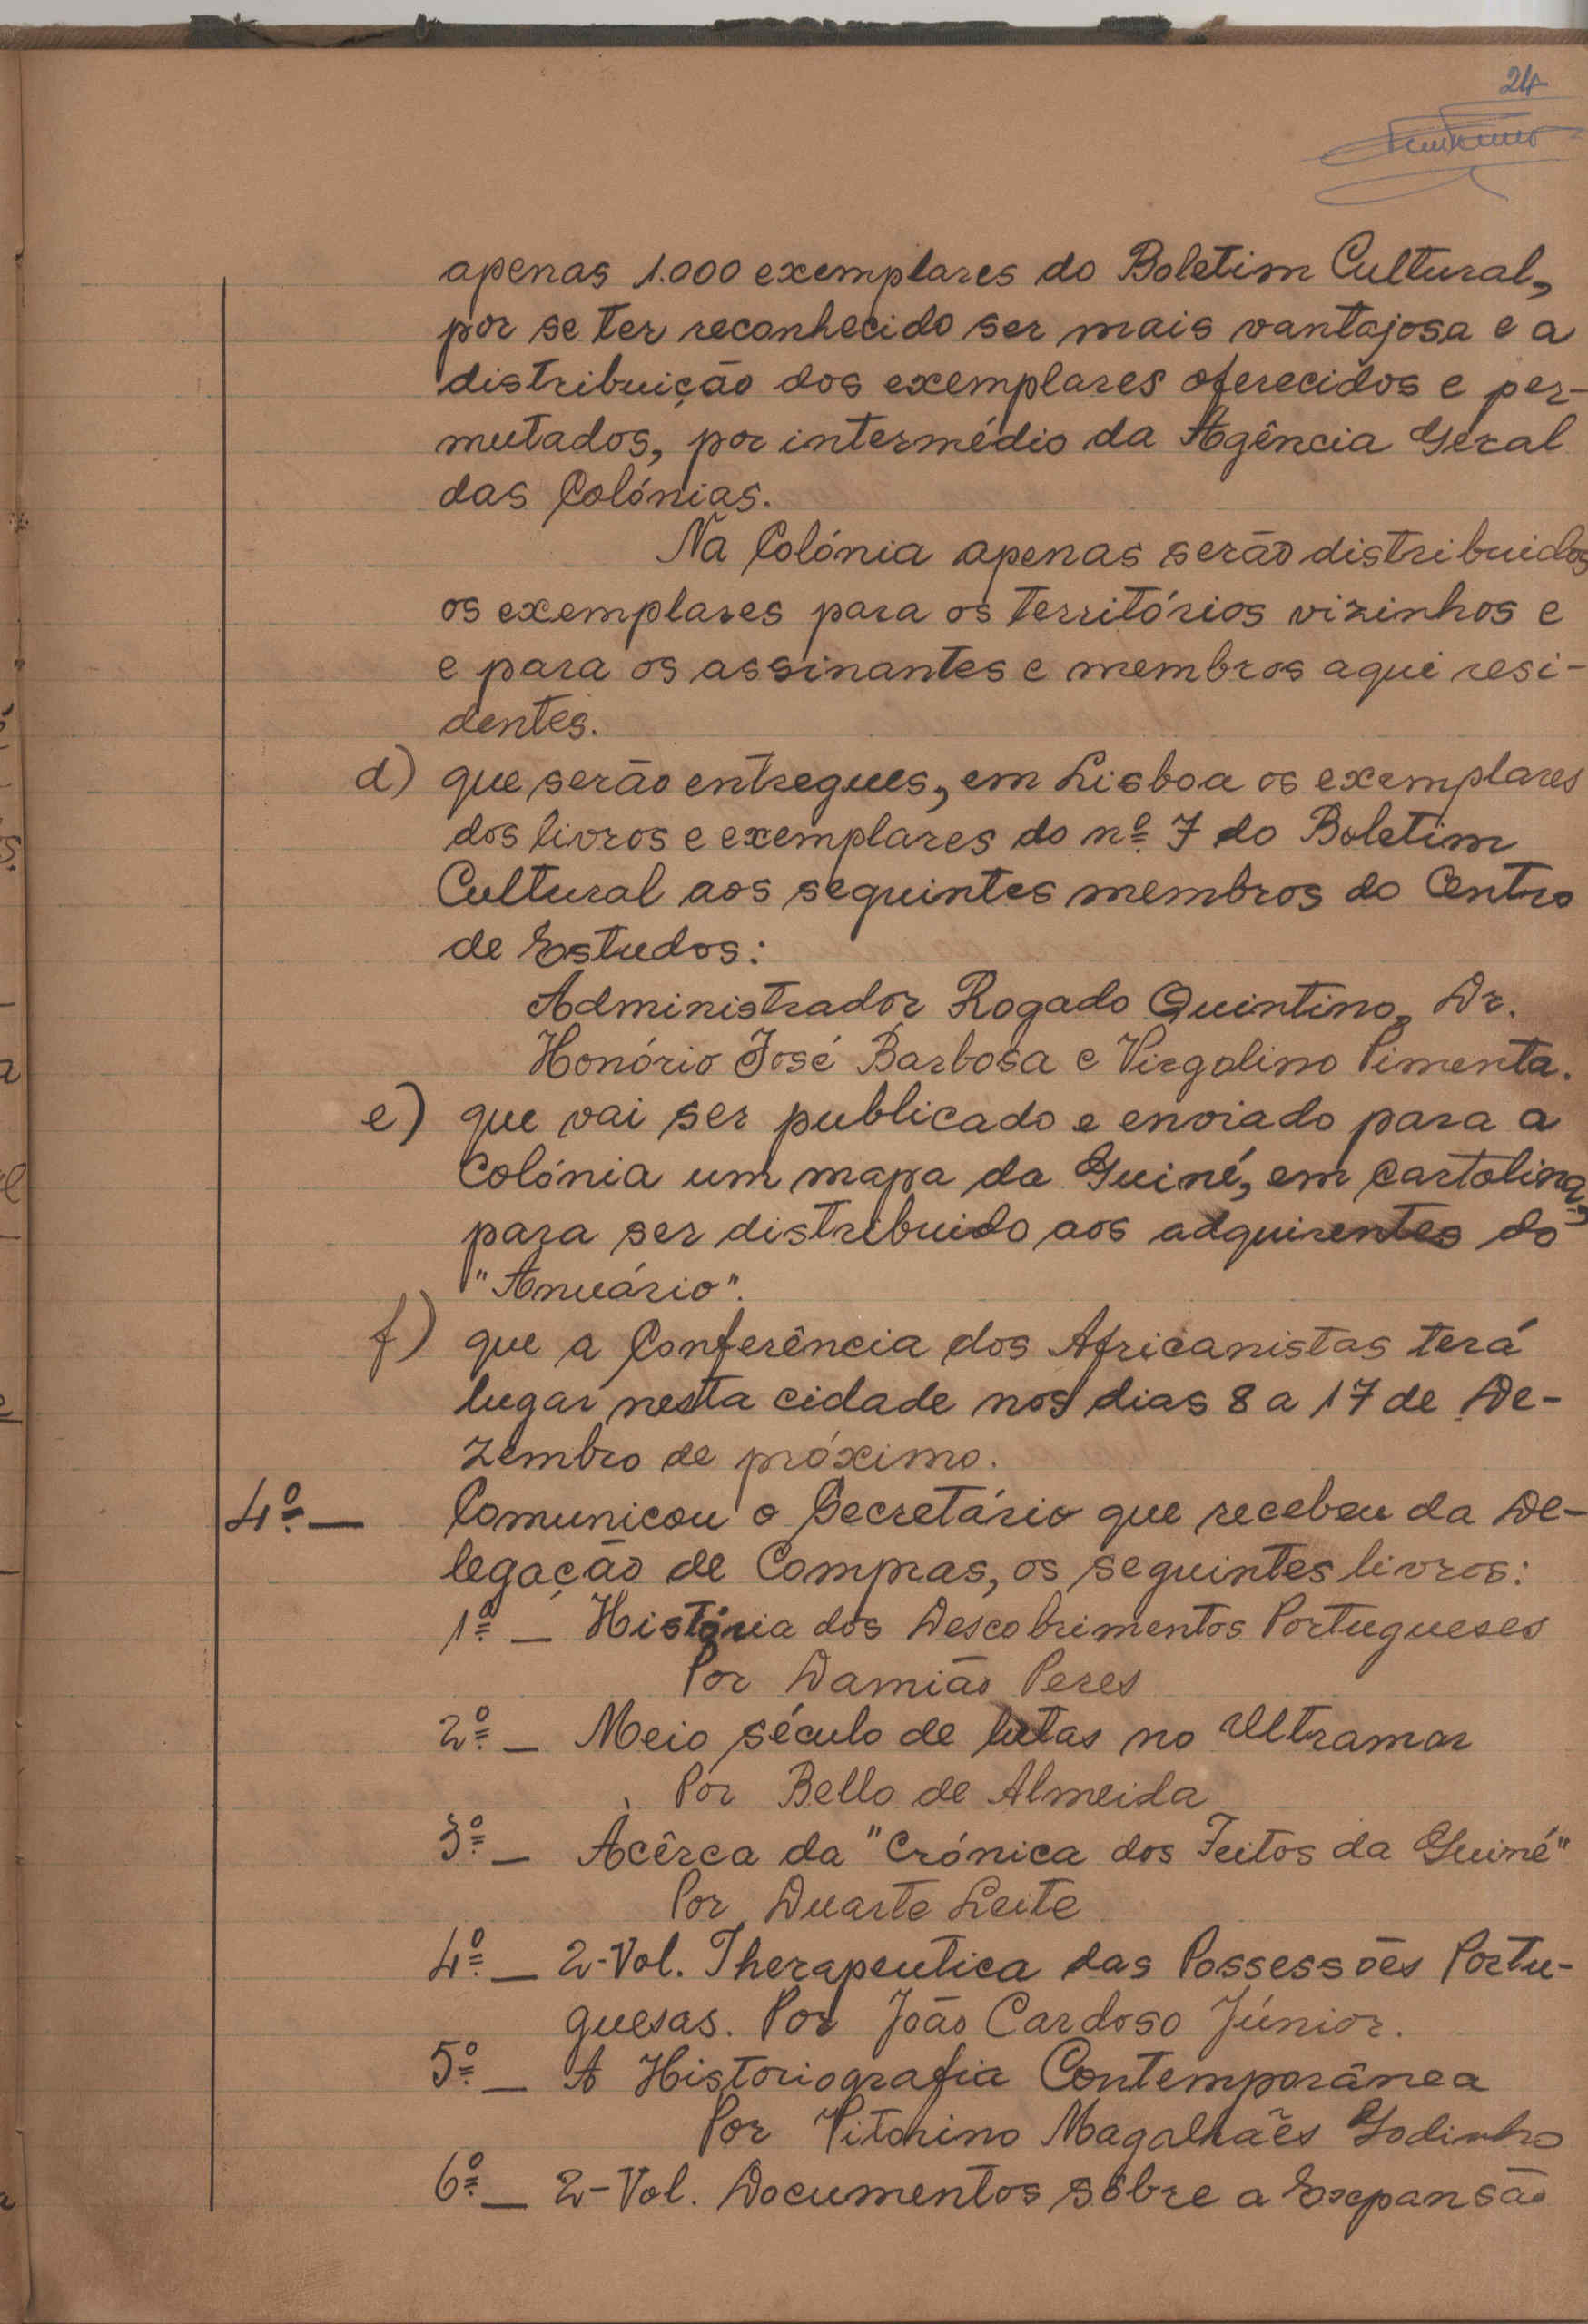 24
apenas 1.000 exemplares do Boletim Cultural,
por se ter reconhecido ser mais vantajosa e a
distribuição dos exemplares oferecidos e per-
mutados, por intermédio da Agência Geral
das Colónias.
Na Colónia apenas serão distribuidos
os exemplares para os territórios vizinhos e
e para os assinantes e membros aqui resi-
dentes.
d) que serão entregues, em Lisboa os exemplares
dos livros e exemplares do nº 7 do Boletim
Cultural aos seguintes membros do Centro
de Estudos:
Administrador Rogado Quintino, Dr.
Honório José Barbosa e Virgolino Pimenta.
e) que vai ser publicado e enviado para a
Colónia um mapa da Guiné, em cartolina,
para ser distribuido aos adquirentes do
"Anuário".
f) que a Conferência dos Africanistas terá
lugar nesta cidade nos dias 8 a 17 de De-
zembro de próximo.
4º — Comunicou o Secretário que recebeu da De-
legação de Compras, os seguintes livros:
1º — História dos Descobrimentos Portugueses
Por Damião Peres
2º — Meio século de lutas no Ultramar
Por Bello de Almeida
3º — Acêrca da "Crónica dos Feitos da Guiné"
Por Duarte Leite
4º — 2-Vol. Therapeutica das Possessões Portu-
guesas. Por João Cardoso Júnior.
5º — A Historiografia Contemporânea
Por Vitorino Magalhães Godinho
6º — 2-Vol. Documentos sôbre a Expansão